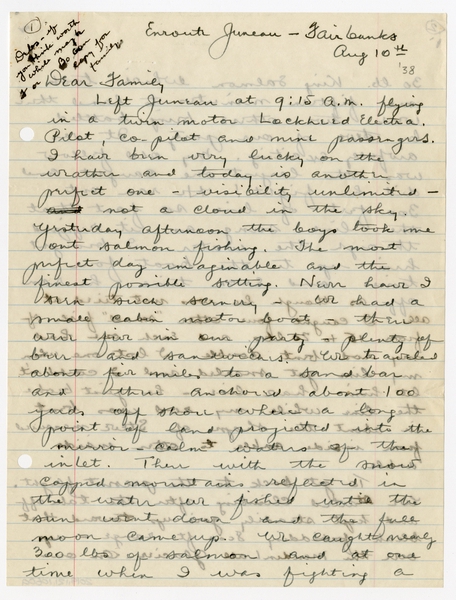 ①
Enroute Juneau – Fairbanks
Aug 10th
'38
Dear Family
Left Juneau at 9:15 A.M. flying
in a twin motor Lockheed Electra.
Pilot, co-pilot and nine passengers.
I have been very lucky on the
weather and today is another
perfect one – visibility unlimited –
not a cloud in the sky.
Yesterday afternoon the boys took me
out salmon fishing. The most
perfect day imaginable and the
finest possible setting. Never have I
seen such scenery – we had a
small cabin motor boat – there
were five in our party + plenty of
beer and sandwiches. We traveled
about five miles to a sand bar
and there anchored about 100
yards off shore where a long
point of land projected into the
mirror-calm waters of the
inlet. Then with the snow
capped mountains reflected in
the water we fished until the
sun went down and the full
moon came up. We caught nearly
300 lbs of salmon and at one
time when I was fighting a